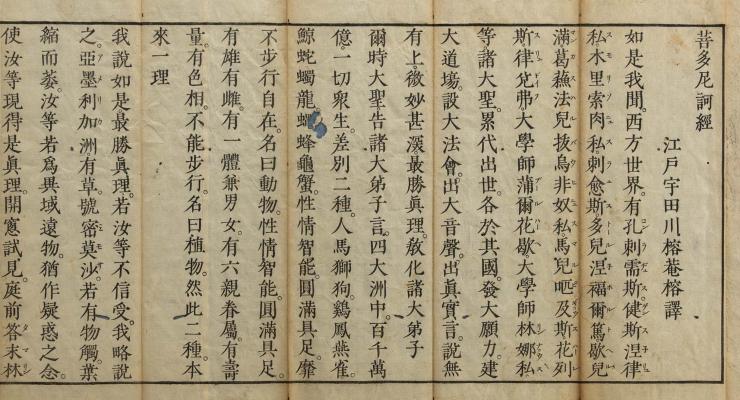 菩多尼訶經
江戸宇田川榕菴榕譯
如是我聞。西方世界。有孔刺需斯健斯涅律
私木里索肉私刺愈斯多兒涅福爾篤歇兒
滿葛蘓法兒拔烏非奴私馬兒呬及斯花列
斯律兊弗大學師蒲爾花歇大學師林娜私
等諸大聖。累代出世。各於其國。發大願力。建
大道場。設大法會。出大音聲。出眞實言。說無
有上。微妙甚深。最勝眞理。敎化諸大弟子
爾時大聖告諸大弟子言。四大洲中。百千萬
億。一切衆生。差別二種。人馬獅狗。鷄鳳燕雀。
鯨蛇蠋龍。蜂龜蟹。性情智能。圓滿具足。靡
不步行自在。名曰動物。性情智能。圓滿具足。
有雄有雌。有一體兼男女。有六親眷屬。有壽
量。有色相。不能步行。名曰植物。然此二種。本
來一理
我說如是最勝眞理。若汝等不信受。我略說
之。亞墨利加洲有草。號密莫沙。若有物觸。葉
縮而萎。汝等若爲異域遠物。猶作疑惑之念。
使汝等現得是眞理。開窻試見。庭前答末林